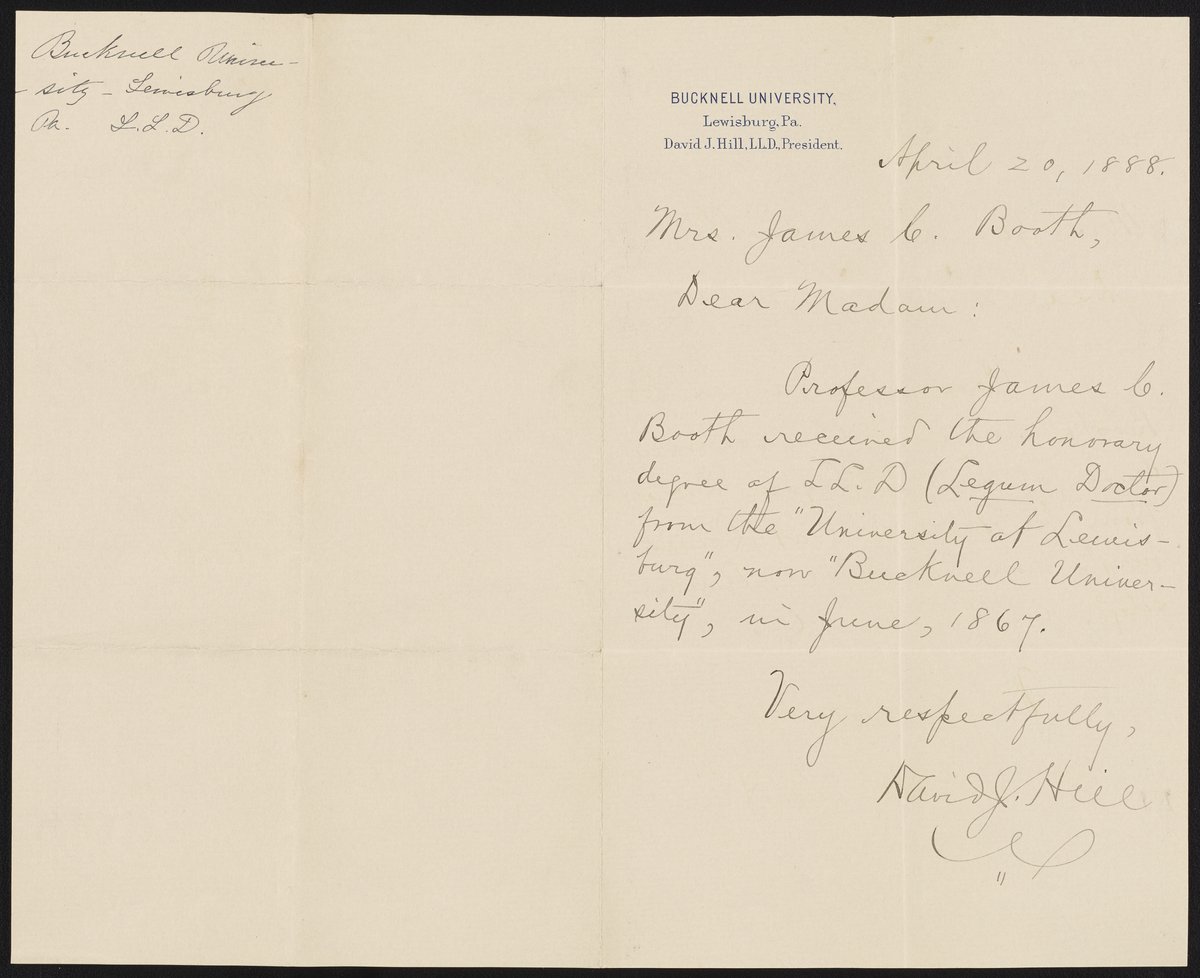 Bucknell Univer-
sity - Lewisburg
Pa. L.L.D.
BUCKNELL UNIVERSITY,
Lewisburg, Pa.
David J. Hill, LL.D., President.
April 20, 1888.
Mrs. James C. Booth,
Dear Madam:
Professor James C.
Booth received the honorary
degree of LL.D (Legum Doctor)
from the "University at Lewis-
burg", now "Bucknell Univer-
sity", in June, 1867.
Very respectfully,
David J. Hill